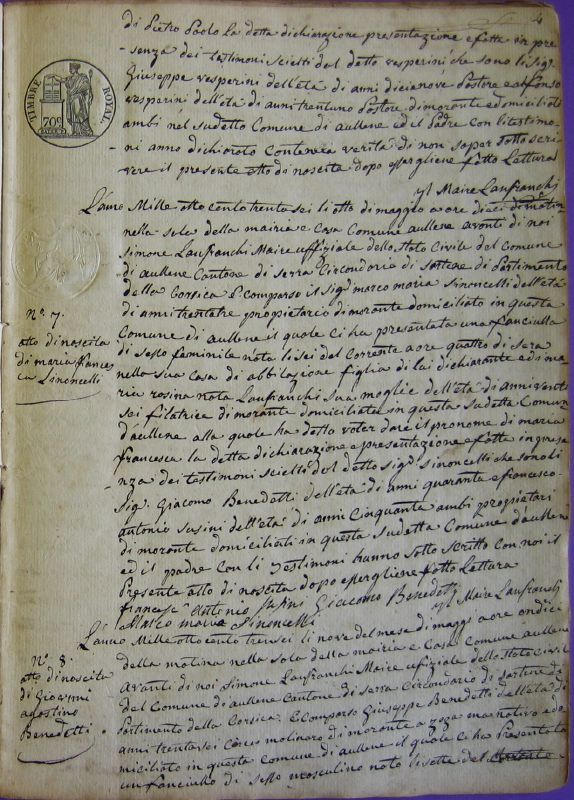 4
di Pietro Paolo la detta dichiarazione presentazione e fatta in pre-
senza dei testimoni scielti del detto vesperini che sono li sig.
Giuseppe vesperini dell'età di anni dicianove Pastore e
vesperini dell'età di anni trentuno Pastore dimorante e domiciliato
ambi nel sudetto Comune di aullene ed il Padre con li testimo-
ni anno dichiarato di non saper sotto scri-
vere il presente atto di nascita dopo fatto Lettura
TIMBRE ROYAL
70c
yl Maire Lanfranchi
L'anno Mille otto cento trenta sei li otto di maggio a ore dieci di matina
nella sala della mairia e Casa Comune aullene avanti di noi
Simone Lanfranchi Maire uffiziale dello Stato Civile del Comune
di aullene Cantone di Serra Circondario di Sartene di Partimento
della Corsica E Comparso il sig. marco maria Sinoncelli dell'età
di anni trentatre proprietario dimorante domiciliato in questa
Comune di aullene il quale ci ha presentata una fanciulla
di sesso feminile nata li sei del corrente a ore quattro di sera
nella sua casa di abbitazione figlia di lui dichiarante e di ma-
ria rosina nata Lanfranchi sua moglie dell'età di anni venti
sei filatrice dimorante domiciliata in questa sudetta Comun
d'aullene alla quale ha detto voler dare il pronome di maria
francesca la detta dichiarazione e presentazione e fatta in prese
nza dei testimoni scielti del detto sig. sinoncelli che sono li
Sig. Giacomo Benedetti dell'età di anni quaranta e francesco
antonio Susini dell'età di anni Cinquante ambi proprietari
dimorante domiciliati in questa sudetta Comune d'aullene
ed il padre con li testimoni hanno sotto scritto con noi il
Presente atto di nascita dopo fatto Lettura
Antonio Susini Giacomo Benedetti yl Maire Lanfranchi
Marco maria Sinoncelli
No. 7.
atto di nascita
di maria frances-
ca Sinoncelli
L'anno Mille otto cento trensei li nove del mese di maggi a ore ondici
della matina nella sala della mairia e Casa Comune aullene
avanti di noi Simone Lanfranchi Maire ufiziale dello Stato Civile
del Comune di aullene Cantone di Serra Circondario di Sartene di
Partimento della Corsica E Comparso Giuseppe Benedetti dell'età di
anni trentasei molinaro dimorante a zoza e do-
miciliato in questa Comune di aullene il quale ci ha Presentato
un fanciullo di sesso masculino nato li sette del
No. 8.
atto di nascita
di Giovanni
agostino
Benedetti